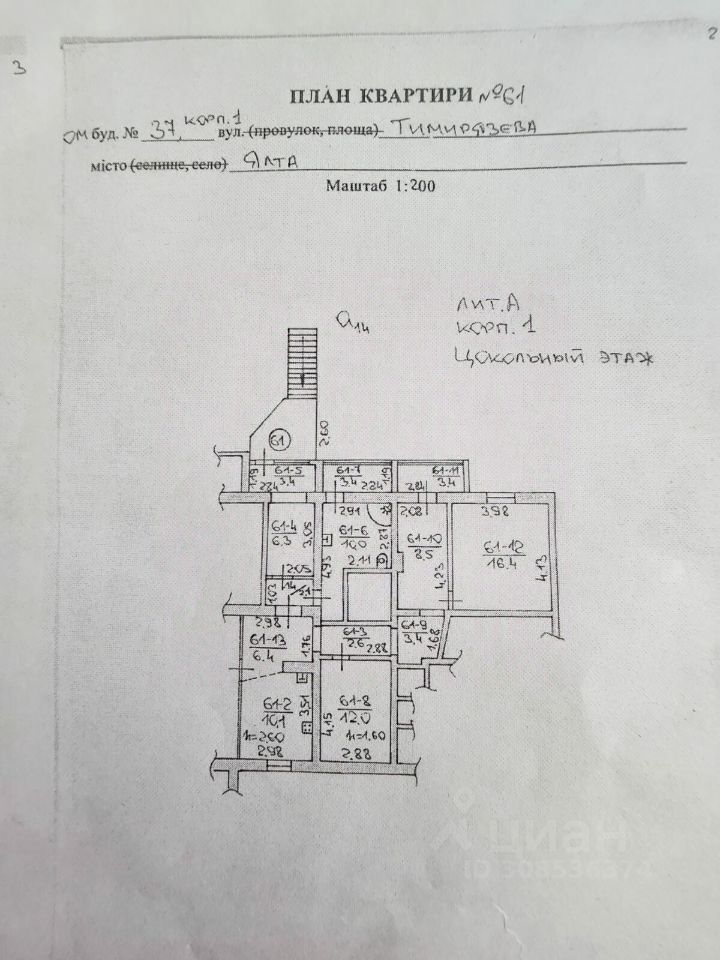 2
3
ПЛАН КВАРТИРИ №61
буд. № 37, корп.1 вул. (провулок, площа) Тимирязева
місто (селище, село) Ялта
Маштаб 1:200
лит.А
корп. 1
Цокольный этаж
a14
61
2.60
1.19
61-5
3.4
2.84
61-7
3.4
2.84
1.19
61-11
3.4
2.84
61-4
6.3
3.05
2.05
2.91
61-6
10.0
2.87
2.11
4.93
2.08
61-10
8.5
4.23
3.98
61-12
16.4
4.13
1.03
2.98
61-13
6.4
1.76
61-3
2.6
2.88
61-9
3.4
1.68
61-2
10.1
3.51
h=2.60
2.98
61-8
12.0
4.15
h=1.60
2.88
циан
ID 308536374